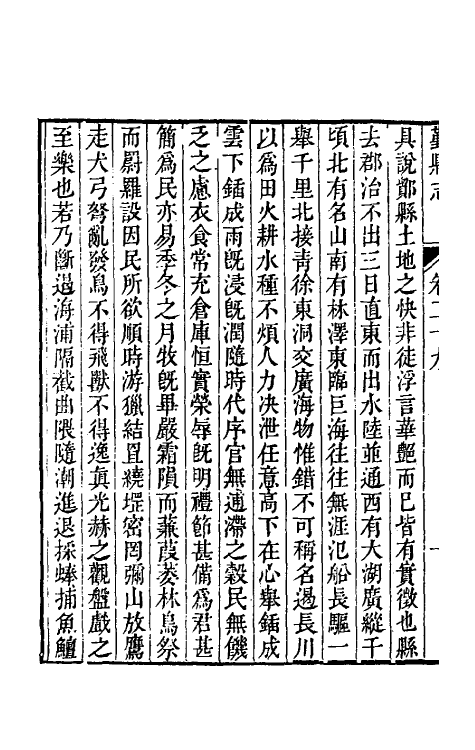 鄞縣志
卷二十九
一
具說鄮縣土地之快非徒浮言華艷而已皆有實徵也縣
去郡治不出三日直東而出水陸並通西有大湖廣縱千
頃北有名山南有林澤東臨巨海往往無涯氾船長驅一
舉千里北接青徐東洞交廣海物惟錯不可稱名遏長川
以爲田火耕水種不煩人力决泄任意高下在心舉鍤成
雲下鍤成雨旣浸旣潤隨時代序官無逋滯之穀民無饑
乏之慮衣食常充倉庫恒實榮辱旣明禮節甚備爲君甚
簡爲民亦易季冬之月牧旣畢嚴霜隕而蒹葭萎林鳥祭
而罻羅設因民所欲順時游獵結罝繞堽密罔彌山放鷹
走犬弓弩亂發鳥不得飛獸不得逸眞光赫之觀盤戲之
至樂也若乃斷遏海浦隔截曲隈隨潮進退採蜯捕魚鱣